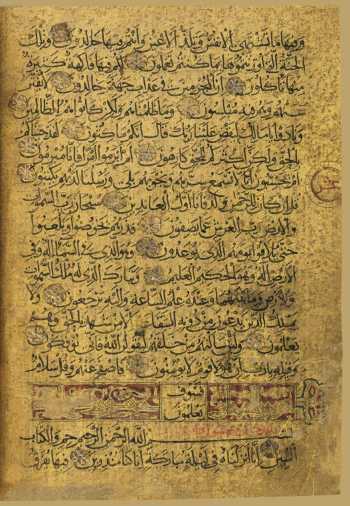 وفيها ما تشتهي الأنفس وتلذ الأعين وأنتم فيها خالدون وتلك
الجنة التي أورثتموها بما كنتم تعملون لكم فيها فاكهة كثيرة
منها تأكلون إن المجرمين في عذاب جهنم خالدون لا يفتر
عنهم وهم فيه مبلسون وما ظلمناهم ولكن كانوا هم الظالمين
ونادوا يا مالك ليقض علينا ربك قال إنكم ماكثون لقد جئناكم
بالحق ولكن أكثركم للحق كارهون أم أبرموا أمرا فإنا مبرمون
أم يحسبون أنا لا نسمع سرهم ونجواهم بلى ورسلنا لديهم يكتبون
قل إن كان للرحمن ولد فأنا أول العابدين سبحان رب السموات
والأرض رب العرش عما يصفون فذرهم يخوضوا ويلعبوا
حتى يلاقوا يومهم الذي يوعدون وهو الذي في السماء إله وفي
الأرض إله وهو الحكيم العليم وتبارك الذي له ملك السموات
والأرض وما بينهما وعنده علم الساعة وإليه ترجعون ولا
يملك الذين يدعون من دونه الشفاعة إلا من شهد بالحق وهم
يعلمون ولئن سألتهم من خلقهم ليقولن الله فأنى يؤفكون
وقيله يا رب إن هؤلاء قوم لا يؤمنون فاصفح عنهم وقل سلام
فسوف
تعلمون
بسم الله الرحمن الرحيم حم والكتاب
المبين إنا أنزلناه في ليلة مباركة إنا كنا منذرين فيها يفرق